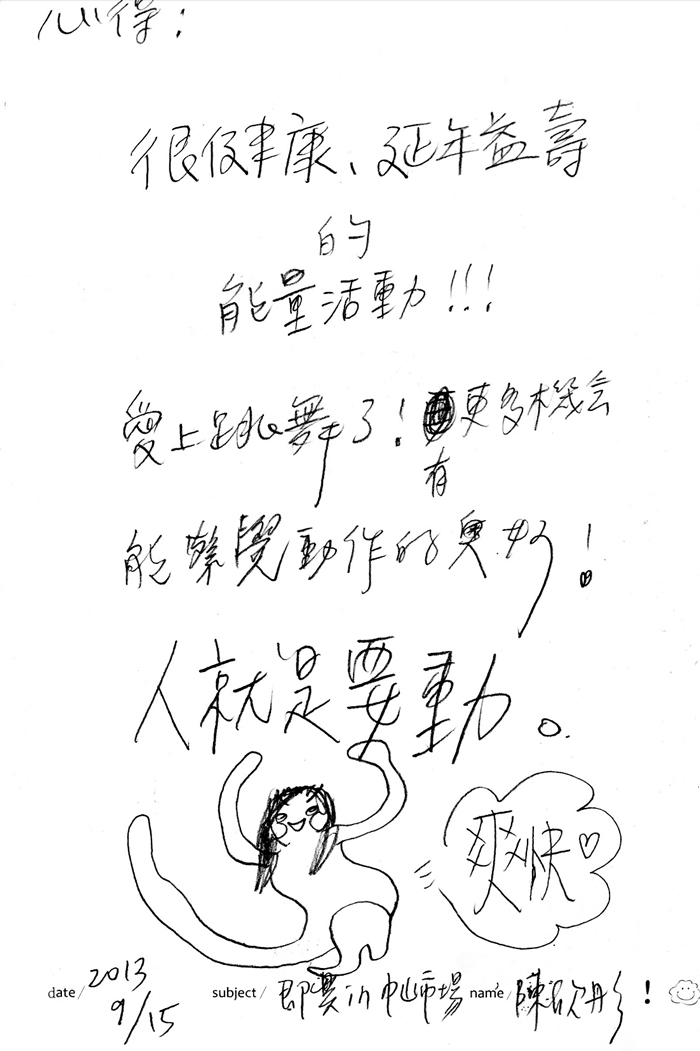 心得:
很健康、延年益壽
的
能量活動!!!
愛上跳舞了!更多機会
有
能察覺動作的奧妙!
人就是要動。
爽快♡
date / 2013 9/15 subject / 即興in中山市場 name / 陳欣彤!